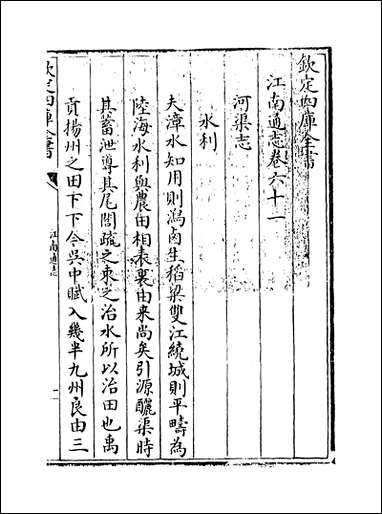 欽定四庫全書
江南通志卷六十一
河渠志
水利
夫漳水知用則瀉鹵生稻梁雙江繞城則平疇為
陸海水利與農田相表裏由来尚矣引源釃渠時
其蓄泄導其尾閭疏之束之治水所以治田也禹
貢揚州之田下下今吳中賦入幾半九州良由三
欽定四庫全書
江南通志